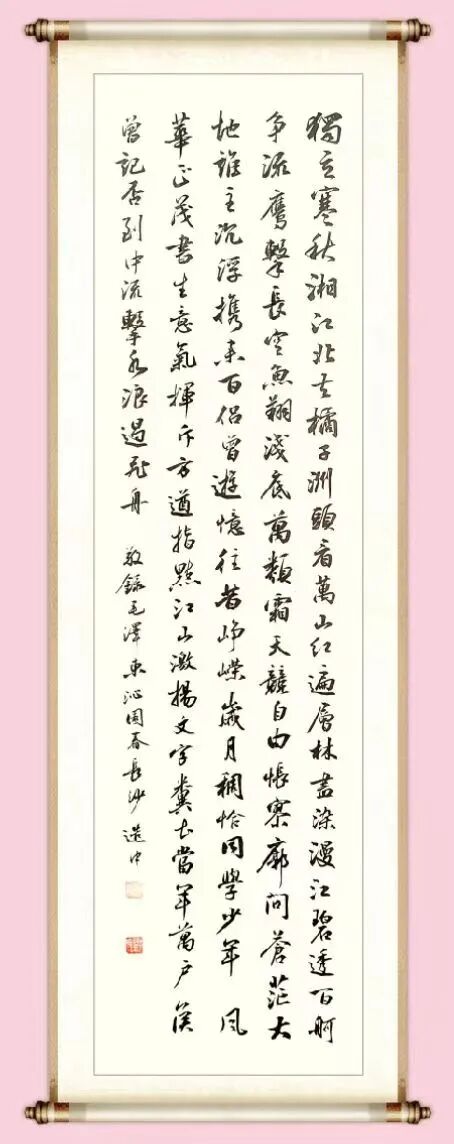 獨立寒秋湘江北去橘子洲頭看萬山紅遍層林盡染漫江碧透百舸
争流鹰擊長空魚翔淺底萬類霜天競自由悵寥廓問蒼茫大
地誰主沉浮攜來百侣曾遊憶往昔崢嶸歲月稠恰同學少年風
華正茂書生意氣揮斥方遒指點江山激揚文字糞土當年萬户侯
曾記否到中流擊水浪遏飛舟
敬錄毛澤東沁園春長沙